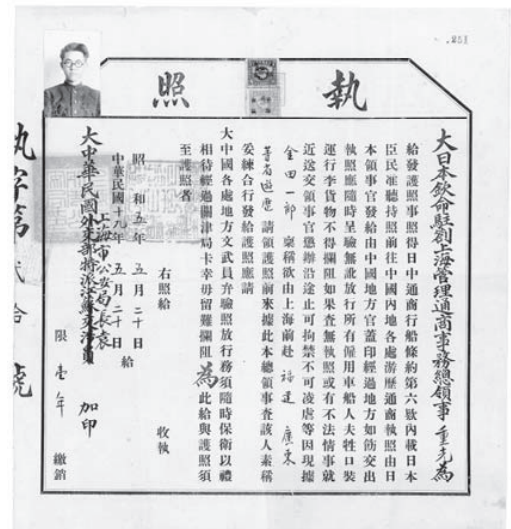 .251
執照
大日本欽命駐劄上海管理通商事務總領事重光為
給發護照事照得日中通商行船條約第六欵內載日本
臣民准聽持照前往中國內地各處游歷通商執照由日
本領事官發給由中國地方官蓋印經過地方如飭交出
執照應隨時呈驗無訛放行所有僱用車船人夫牲口裝
運行李貨物不得攔阻如果查無執照或有不法情事就
近送交領事官懲辦沿途止可拘禁不可凌虐等因現據
金田一郎 稟稱欲由上海前赴 福建 廣東
等省遊歷 請領護照前來據此本總領事查該人素稱
妥練合行發給護照應請
大中國各處地方文武員弁驗照放行務須隨時保衛以禮
相待經過關津局卡幸毋留難攔阻為此給與護照須
至護照者
右照給 收執
昭和五年 五月二十日 給
中華民國十九年 五月二十日
上海市公安局長袁
大中華民國外交部特派江蘇交涉員 加印
限壹年 繳銷
執字第弍拾 號